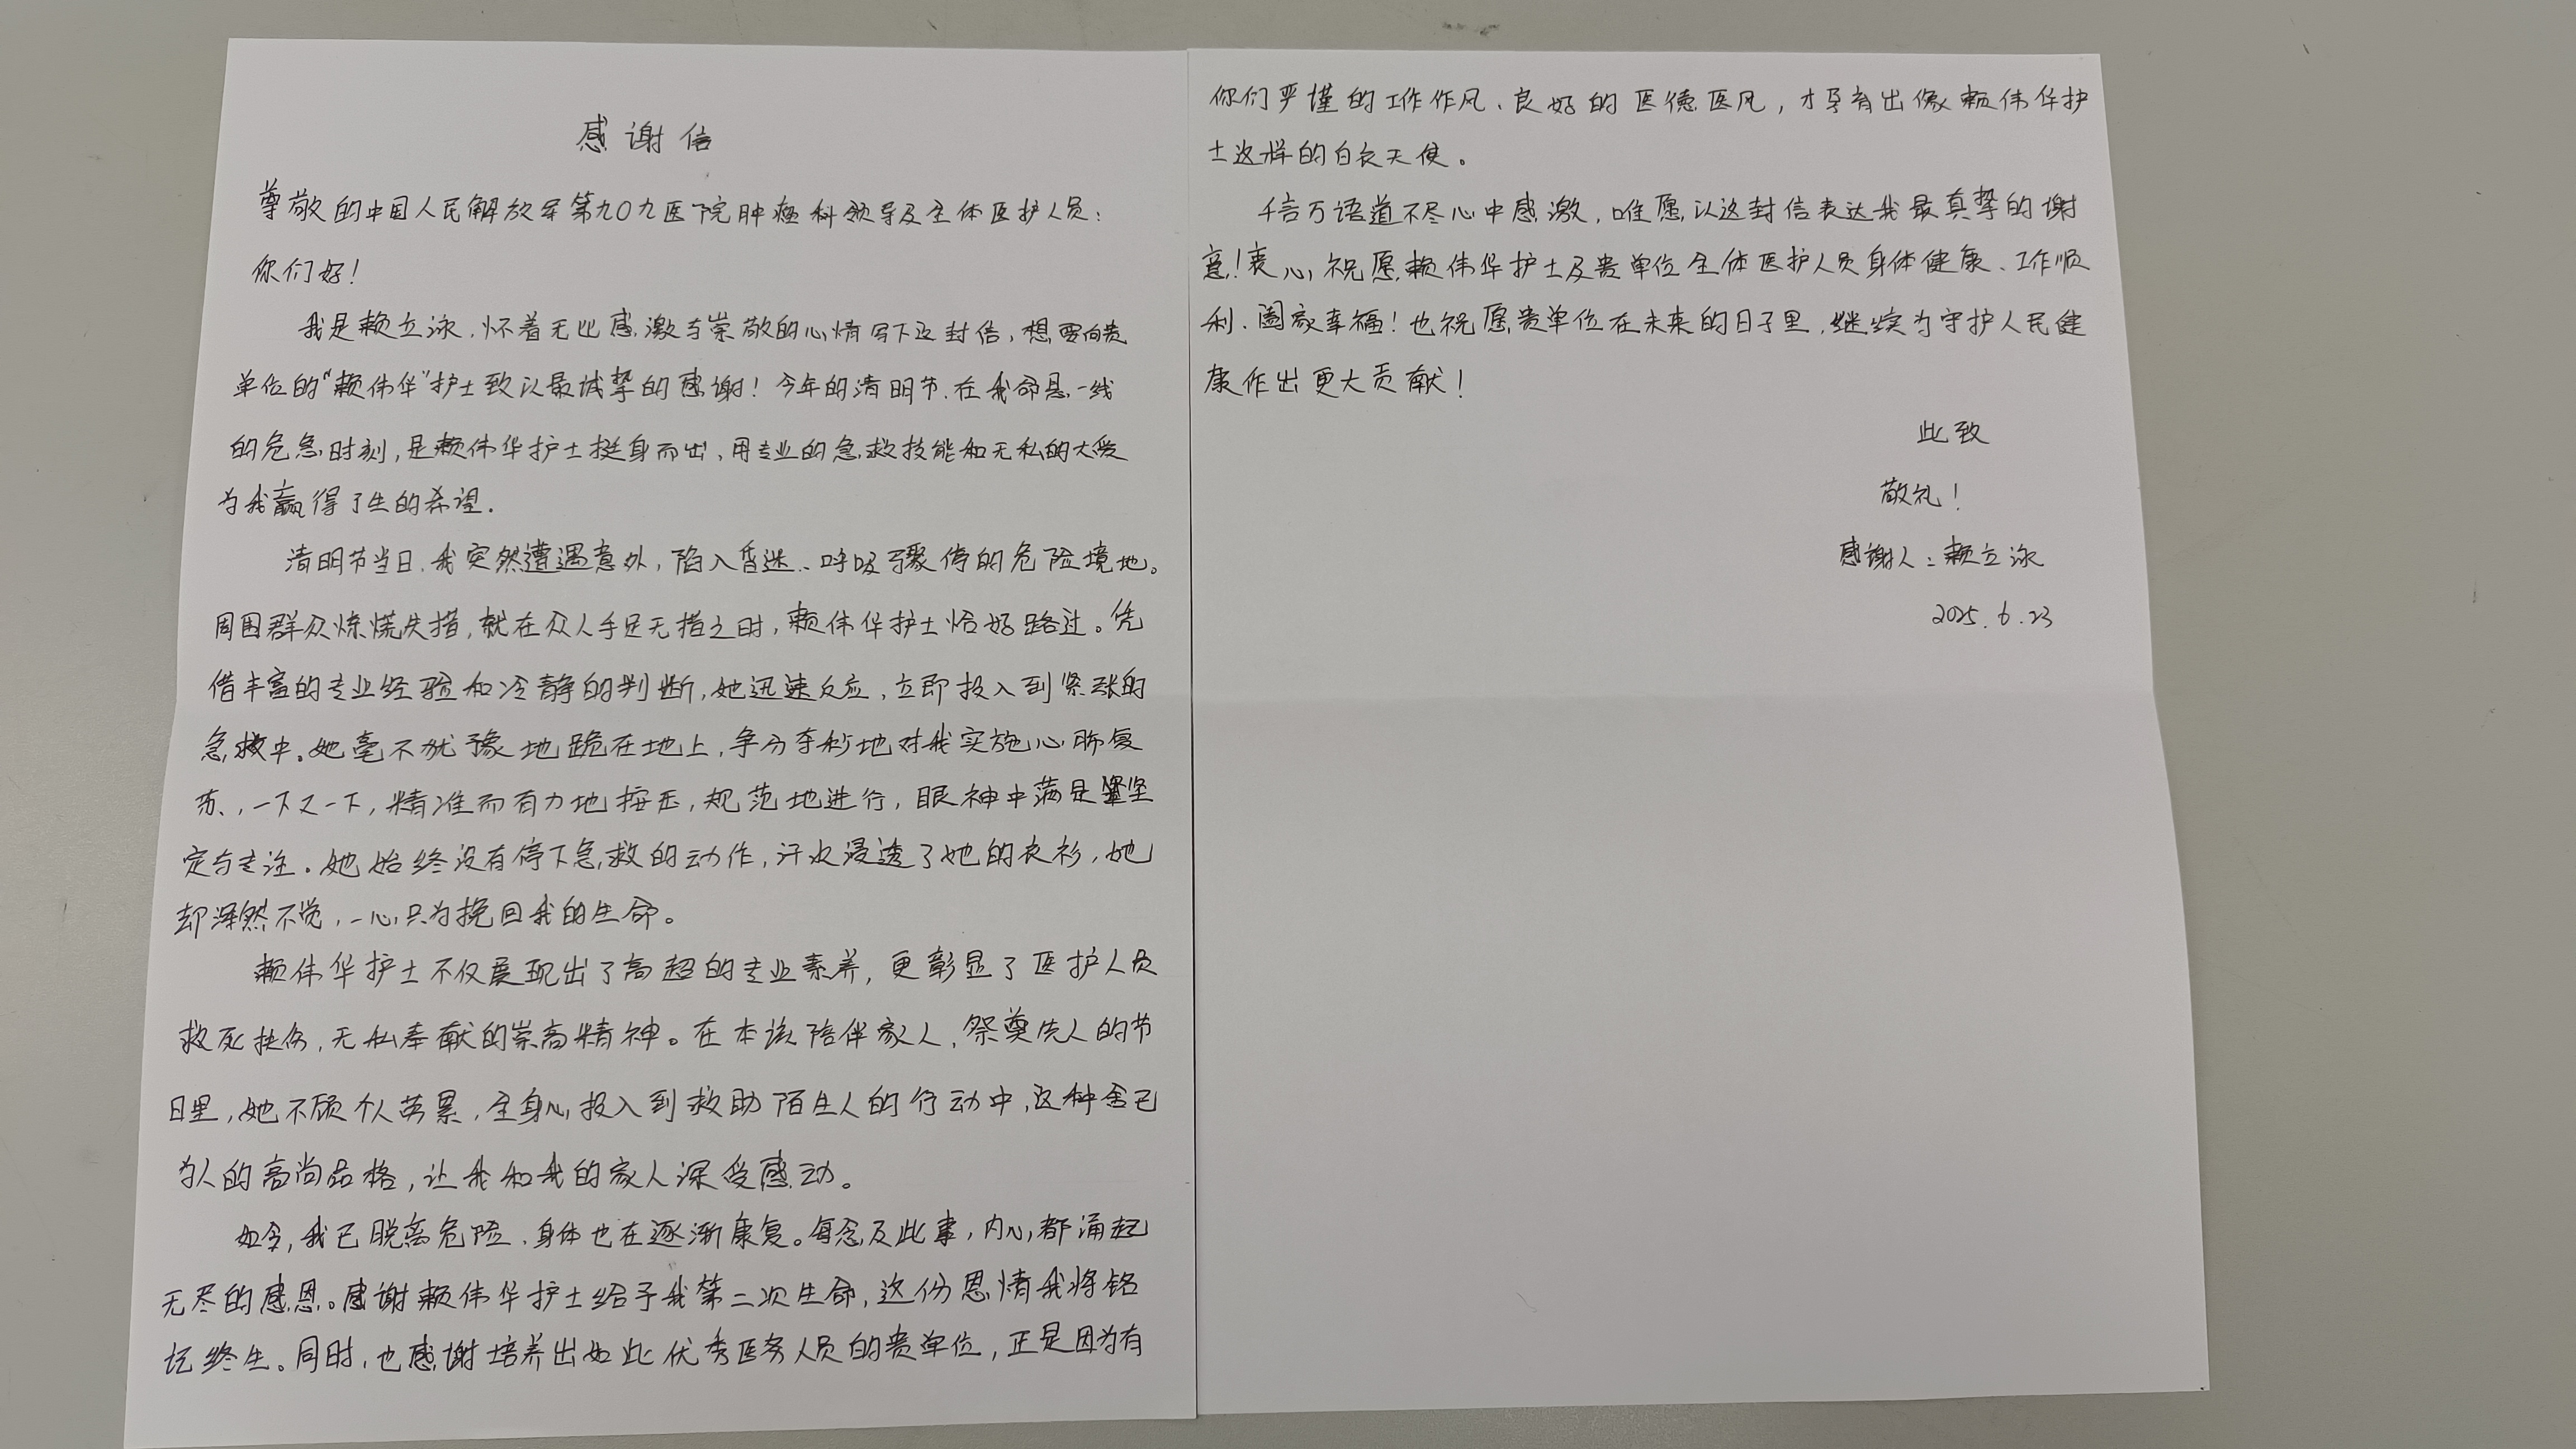 感谢信
尊敬的中国人民解放军第九0九医院肿瘤科领导及全体医护人员：
你们好！
我是赖立泳，怀着无比感激与崇敬的心情写下这封信，想要向贵
单位的“赖伟华”护士致以最诚挚的感谢！今年的清明节，在我命悬一线
的危急时刻，是赖伟华护士挺身而出，用专业的急救技能和无私的大爱
为我赢得了生的希望．
清明节当日，我突然遭遇意外，陷入昏迷、呼吸骤停的危险境地。
周围群众惊慌失措，就在众人手足无措之时，赖伟华护士恰好路过。凭
借丰富的专业经验和冷静的判断，她迅速反应，立即投入到紧张的
急救中。她毫不犹豫地跪在地上，争分夺秒地对我实施心肺复
苏，一下又一下，精准而有力地按压，规范地进行，眼神中满是坚
定与专注．她始终没有停下急救的动作，汗水浸透了她的衣衫，她
却浑然不觉，一心只为挽回我的生命。
赖伟华护士不仅展现出了高超的专业素养，更彰显了医护人员
救死扶伤，无私奉献的崇高精神。在本该陪伴家人、祭奠先人的节
日里，她不顾个人劳累，全身心投入到救助陌生人的行动中，这种舍己
为人的高尚品格，让我和我的家人深受感动。
如今，我已脱离危险，身体也在逐渐康复。每念及此事，内心都涌起
无尽的感恩。感谢赖伟华护士给予我第二次生命，这份恩情我将铭
记终生。同时，也感谢培养出如此优秀医务人员的贵单位，正是因为有
你们严谨的工作作风、良好的医德医风，才孕育出像赖伟华护
士这样的白衣天使。
千言万语道不尽心中感激，唯愿以这封信表达我最真挚的谢
意！衷心祝愿赖伟华护士及贵单位全体医护人员身体健康、工作顺
利、阖家幸福！也祝愿贵单位在未来的日子里，继续为守护人民健
康作出更大贡献！
此致
敬礼！
感谢人：赖立泳
2025.6.23